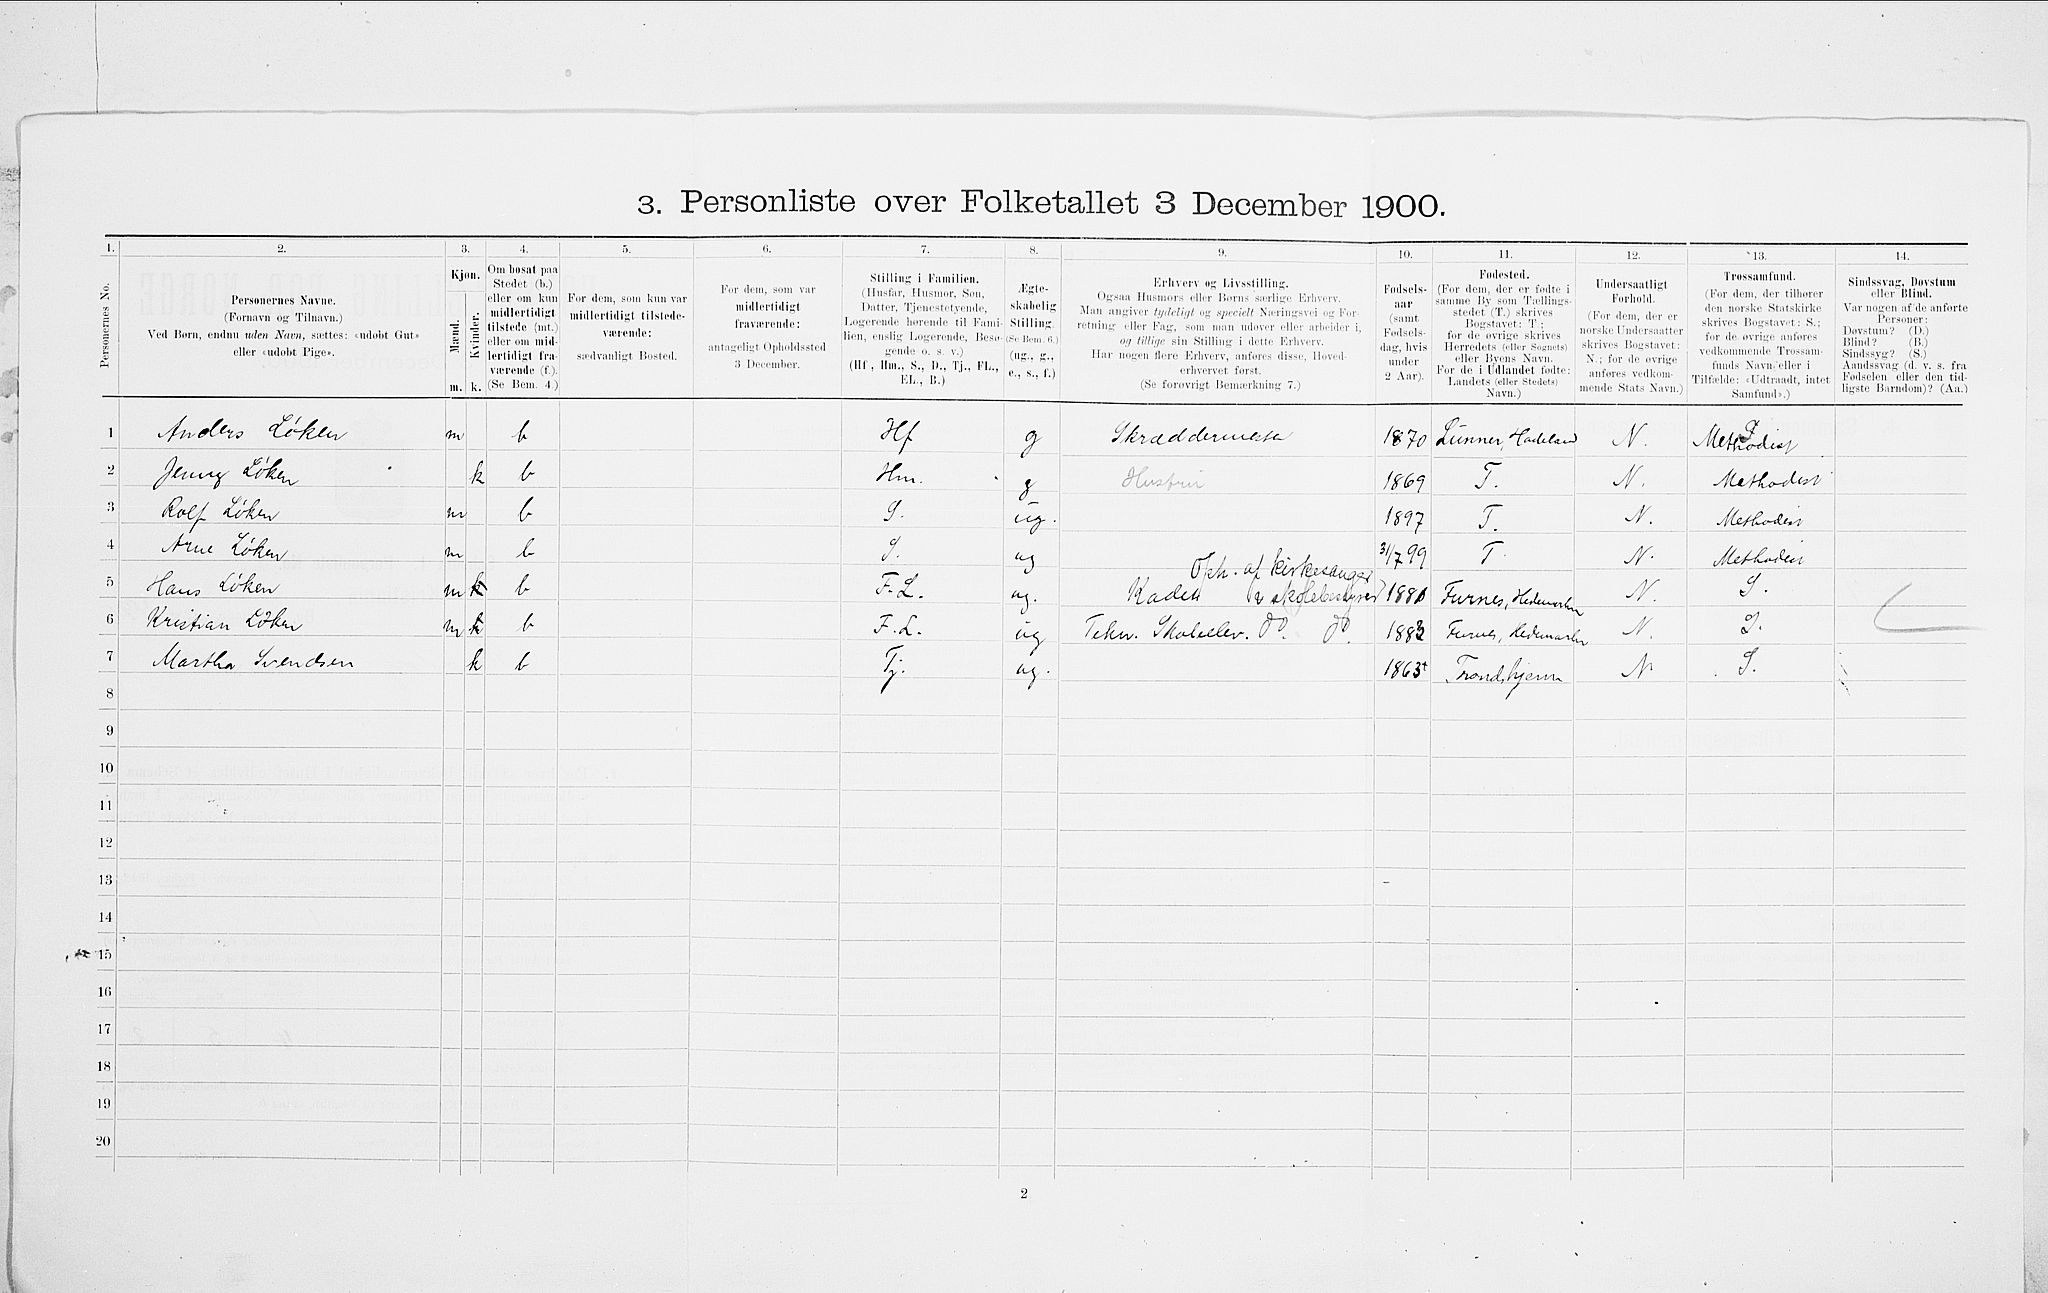 3. Personliste over Folketallet 3 December 1900.
1. 2. 3. 4. 5. 6. 7. 8. 9. 10. 11. 12. 13. 14.
Personernes No.
Personernes Navne.
(Fornavn og Tilnavn.)
Ved Børn, endnu uden Navn, sættes: «udobt Gut»
eller «udobt Pige».
Kjøn.
Mænd.
Kvinder.
m. k.
Om bosat paa
Stedet (b.)
eller om kun
midlertidigt
tilstede (mt.)
eller om mid-
lertidigt fra-
værende (f.).
(Se Bem. 4.)
For dem, som kun var
midlertidigt tilstede-
værende:
sædvanligt Bosted.
For dem, som var
midlertidigt
fraværende:
antageligt Opholdssted
3 December.
Stilling i Familien.
(Husfar, Husmor, Søn,
Datter, Tjenestetyende,
Logerende hørende til Fami-
lien, enslig Logerende, Besø-
gende o. s. v.)
(Hf., Hm., S., D., Tj., FL.,
EL., B.)
Ægte-
skabelig
Stilling.
(Se Bem. 6.)
(ug., g.,
e., s., f.)
Erhverv og Livsstilling.
Ogsaa Husmors eller Børns særlige Erhverv.
Man angiver tydeligt og specielt Næringsvei og For-
retning eller Fag, som man udøver eller arbeider i,
og tillige sin Stilling i dette Erhverv.
Har nogen flere Erhverv, anføres disse, Hoved-
erhvervet først.
(Se forøvrigt Bemærkning 7.)
Fødsels-
aar
(samt
Fødsels-
dag, hvis
under
2 Aar).
Fødested.
(For dem, der er fødte i
samme By som Tællings-
stedet (T.) skrives
Bogstavet: T;
for de øvrige skrives
Herredets (eller Sognets)
eller Byens Navn.
For de i Udlandet fødte:
Landets (eller Stedets)
Navn.)
Undersaatligt
Forhold.
(For dem, der er
norske Undersaatter
skrives Bogstavet:
N.; for de øvrige
anføres vedkom-
mende Stats Navn.)
Trossamfund.
(For dem, der tilhører
den norske Statskirke
skrives Bogstavet: S.;
for de øvrige anføres
vedkommende Trossam-
funds Navn, eller i
Tilfælde: «Udtraadt, intet
Samfund».)
Sindssvag, Døvstum
eller Blind.
Var nogen af de anførte
Personer:
Døvstum? (D.)
Blind? (B.)
Sindssyg? (S.)
Aandssvag (d. v. s. fra
Fødselen eller den tid-
ligste Barndom)? (Aa.)
1 Anders Løken m b Hf g 1870 Lunner, Hadeland N. Methodist
2 Jenny Løken k b Hm. g Hustru 1869 T. N. Methodist
3 Rolf Løken m b S. ug. 1897 T. N. Methodist
4 Arne Løken m b S. ug 31/7 99 T N. Methodist
5 Hans Løken m k b F.L. ug. Kadet Furnes, Hedemarken N. S.
6 Kristian Løken m k b F.L. ug Tekn. Skoleelev. do. do. Furnes, Hedemarken N. S.
7 Martha Svendsen k b Tj. ug. 1863 Trondhjem N S.
8
9
10
11
12
13
14
15
16
17
18
19
20
2